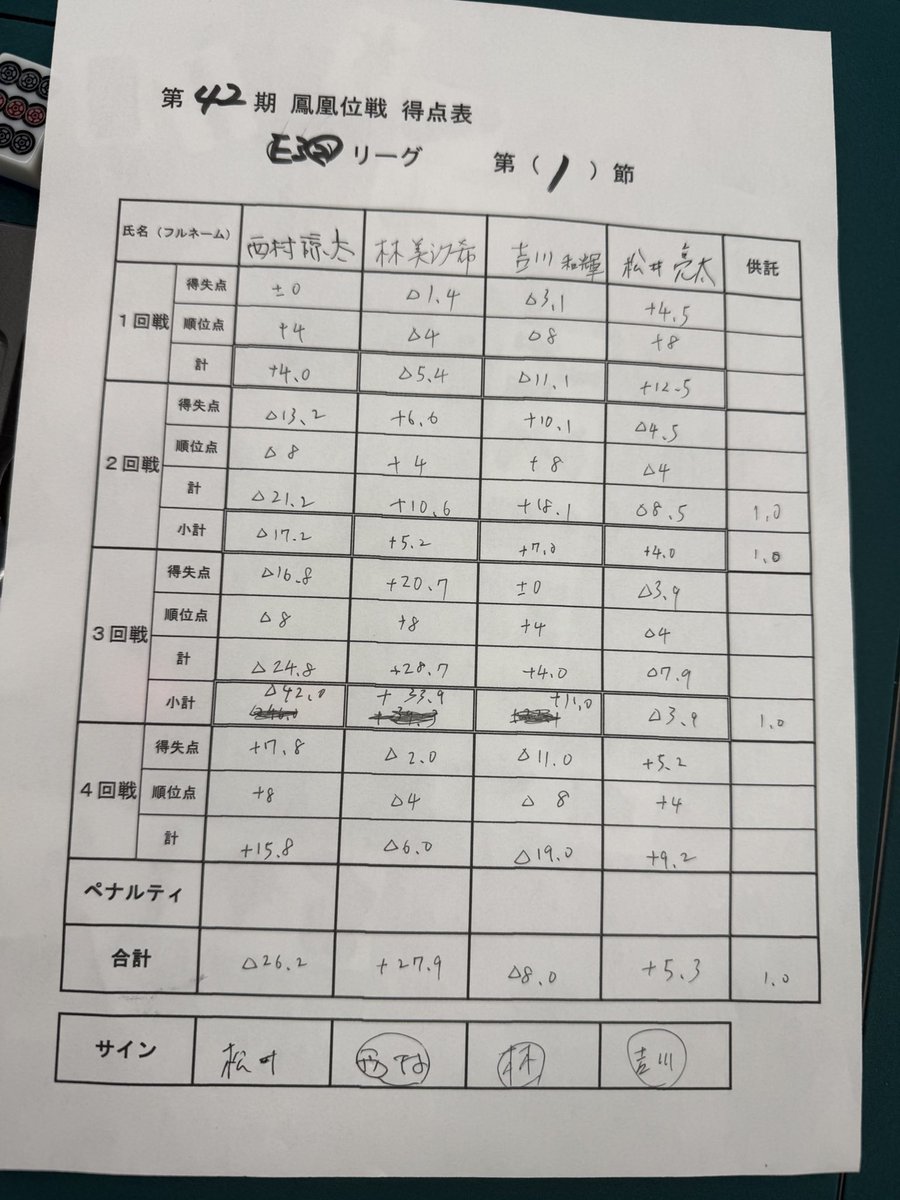 第 42 期 鳳凰位戦 得点表
リーグ 第 ( 1 ) 節
氏名 (フルネーム) 西村 諒太 林 美沙希 吉川 和輝 松井 亮太 供託
1回戦 得失点 ±0 △1.4 △3.1 +4.5
順位点 +4 △4 △8 +8
計 +4.0 △5.4 △11.1 +12.5
2回戦 得失点 △13.2 +6.6 +10.1 △4.5
順位点 △8 +4 +8 △4
計 △21.2 +10.6 +18.1 △8.5 1.0
小計 △17.2 +5.2 +7.0 +4.0 1.0
3回戦 得失点 △16.8 +20.7 ±0 △3.9
順位点 △8 +8 +4 △4
計 △24.8 +28.7 +4.0 △7.9
小計 △42.0 +33.9 +11.0 △3.9 1.0
4回戦 得失点 +7.8 △2.0 △11.0 +5.2
順位点 +8 △4 △8 +4
計 +15.8 △6.0 △19.0 +9.2
ペナルティ
合計 △26.2 +27.9 △8.0 +5.3 1.0
サイン 松井 林 吉川